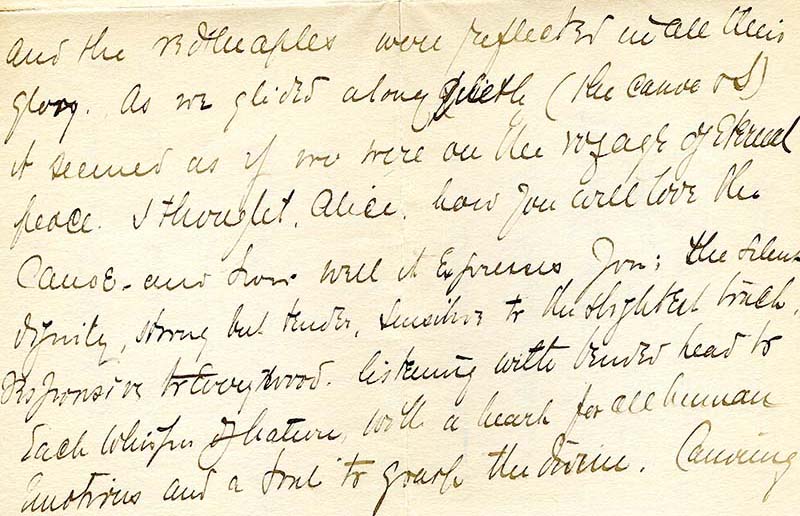 and the red maples were reflected in all their
glory. As we glided along quietly (the canoe & I)
it seemed as if we were on the voyage of Eternal
peace. I thought, Alice, how you will love the
Canoe - and how well it Expresses you; the silent
dignity, strong but tender, sensitive to the slightest touch,
responsive to Every mood. listening with bended head to
Each whisper of nature, with a heart for all human
Emotions and a soul to grasp the divine. Canoeing